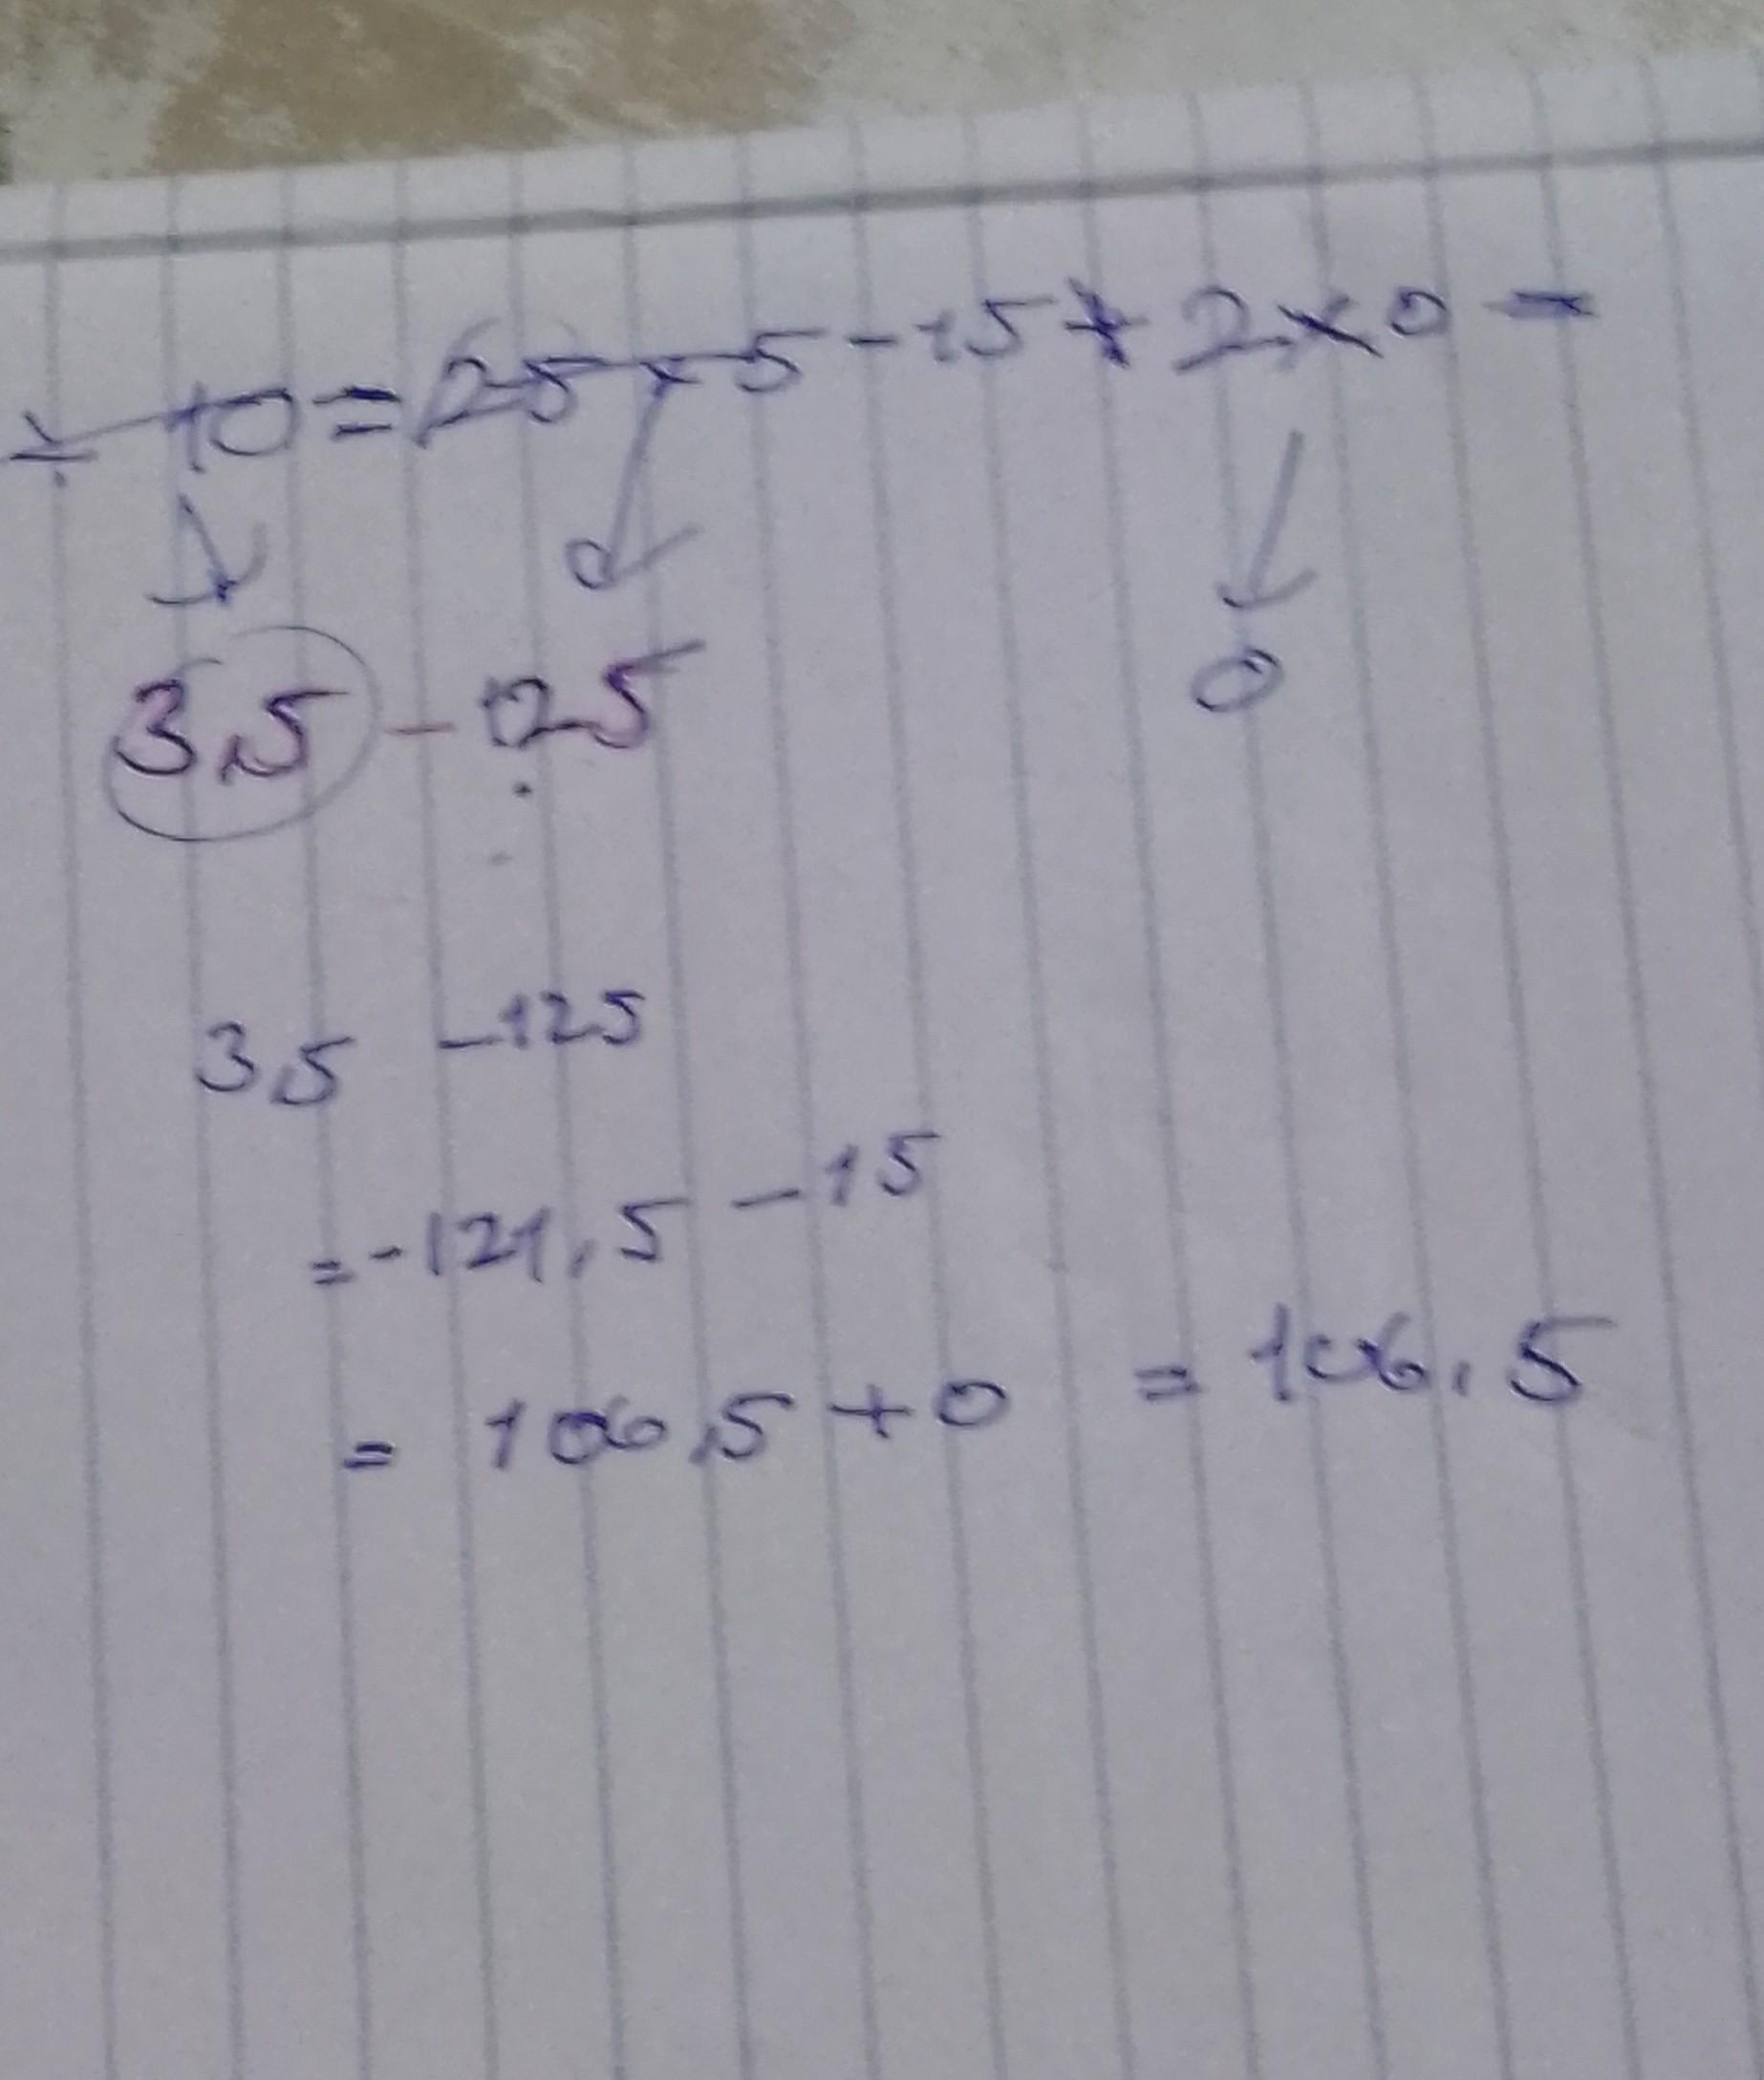 ÷ 10 = 25 x 5 - 15 + 2 x 0 =
3,5 - 125
0
3,5 - 125
= - 121,5 - 15
= 106,5 + 0 = 106,5